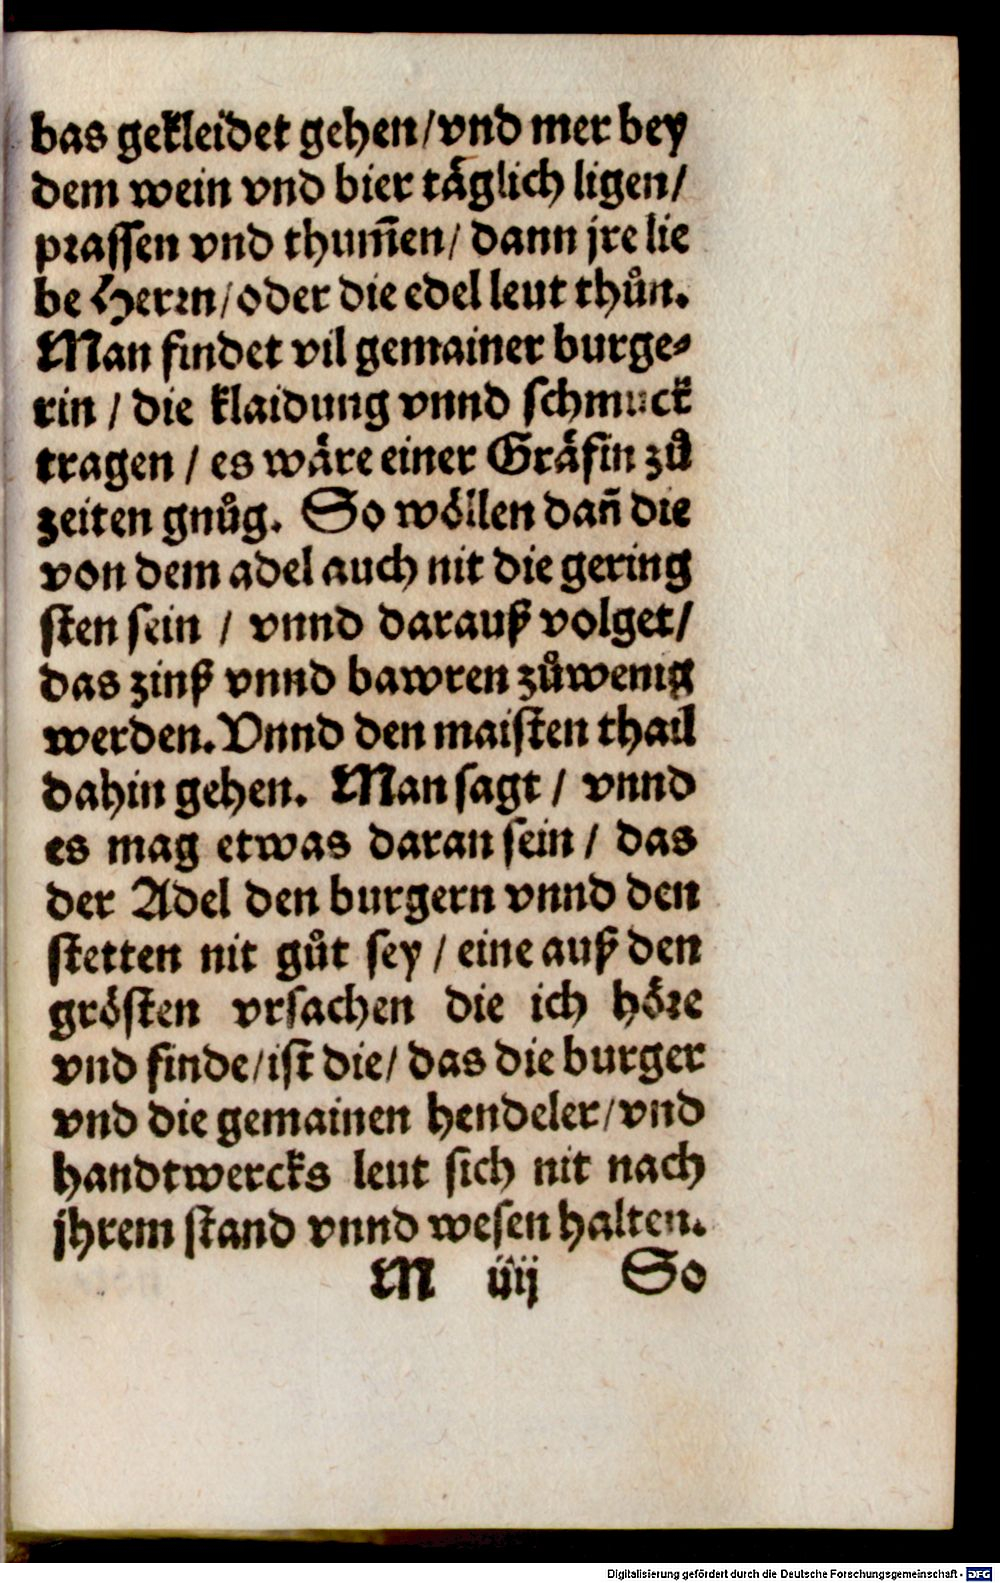 bas gekleidet gehen/vnd mer bey
dem wein vnd bier täglich ligen/
prassen vnd thum̄en/ dann jre lie
be Herrn/oder die edel leut thůn.
Man findet vil gemainer burge⸗
rin / die klaidung vnnd schmuck
tragen / es wäre einer Gräfin zů
zeiten gnůg. So wöllen dañ die
von dem adel auch nit die gering
sten sein / vnnd darauß volget/
das zinß vnnd bawren zůwenig
werden. Vnnd den maisten thail
dahin gehen. Man sagt / vnnd
es mag etwas daran sein / das
der Adel den burgern vnnd den
stetten nit gůt sey / eine auß den
grösten vrsachen die ich höre
vnd finde/ist die/ das die burger
vnd die gemainen hendeler/vnd
handtwercks leut sich nit nach
jhrem stand vnnd wesen halten.
M iiij So
Digitalisierung gefördert durch die Deutsche Forschungsgemeinschaft - DFG